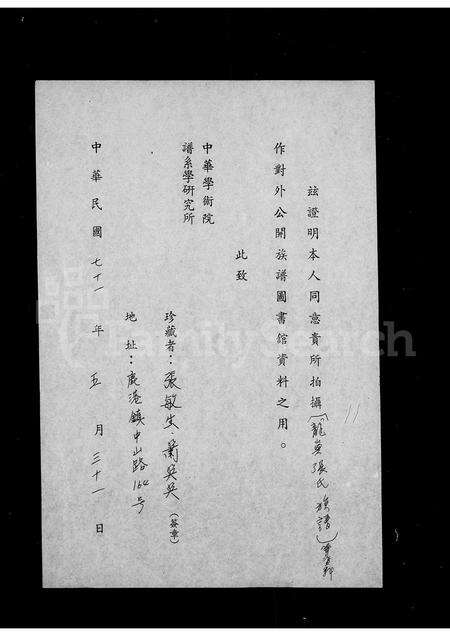 茲證明本人同意貴所拍攝(龍井張氏族譜)
作對外公開族譜圖書館資料之用。
此致
中華學術院
譜系學研究所
珍藏者：張敏生．蕭吳吳（簽章）
地址：鹿港鎮中山路164号
中華民國七十一年五月三十一日
FamilySearch